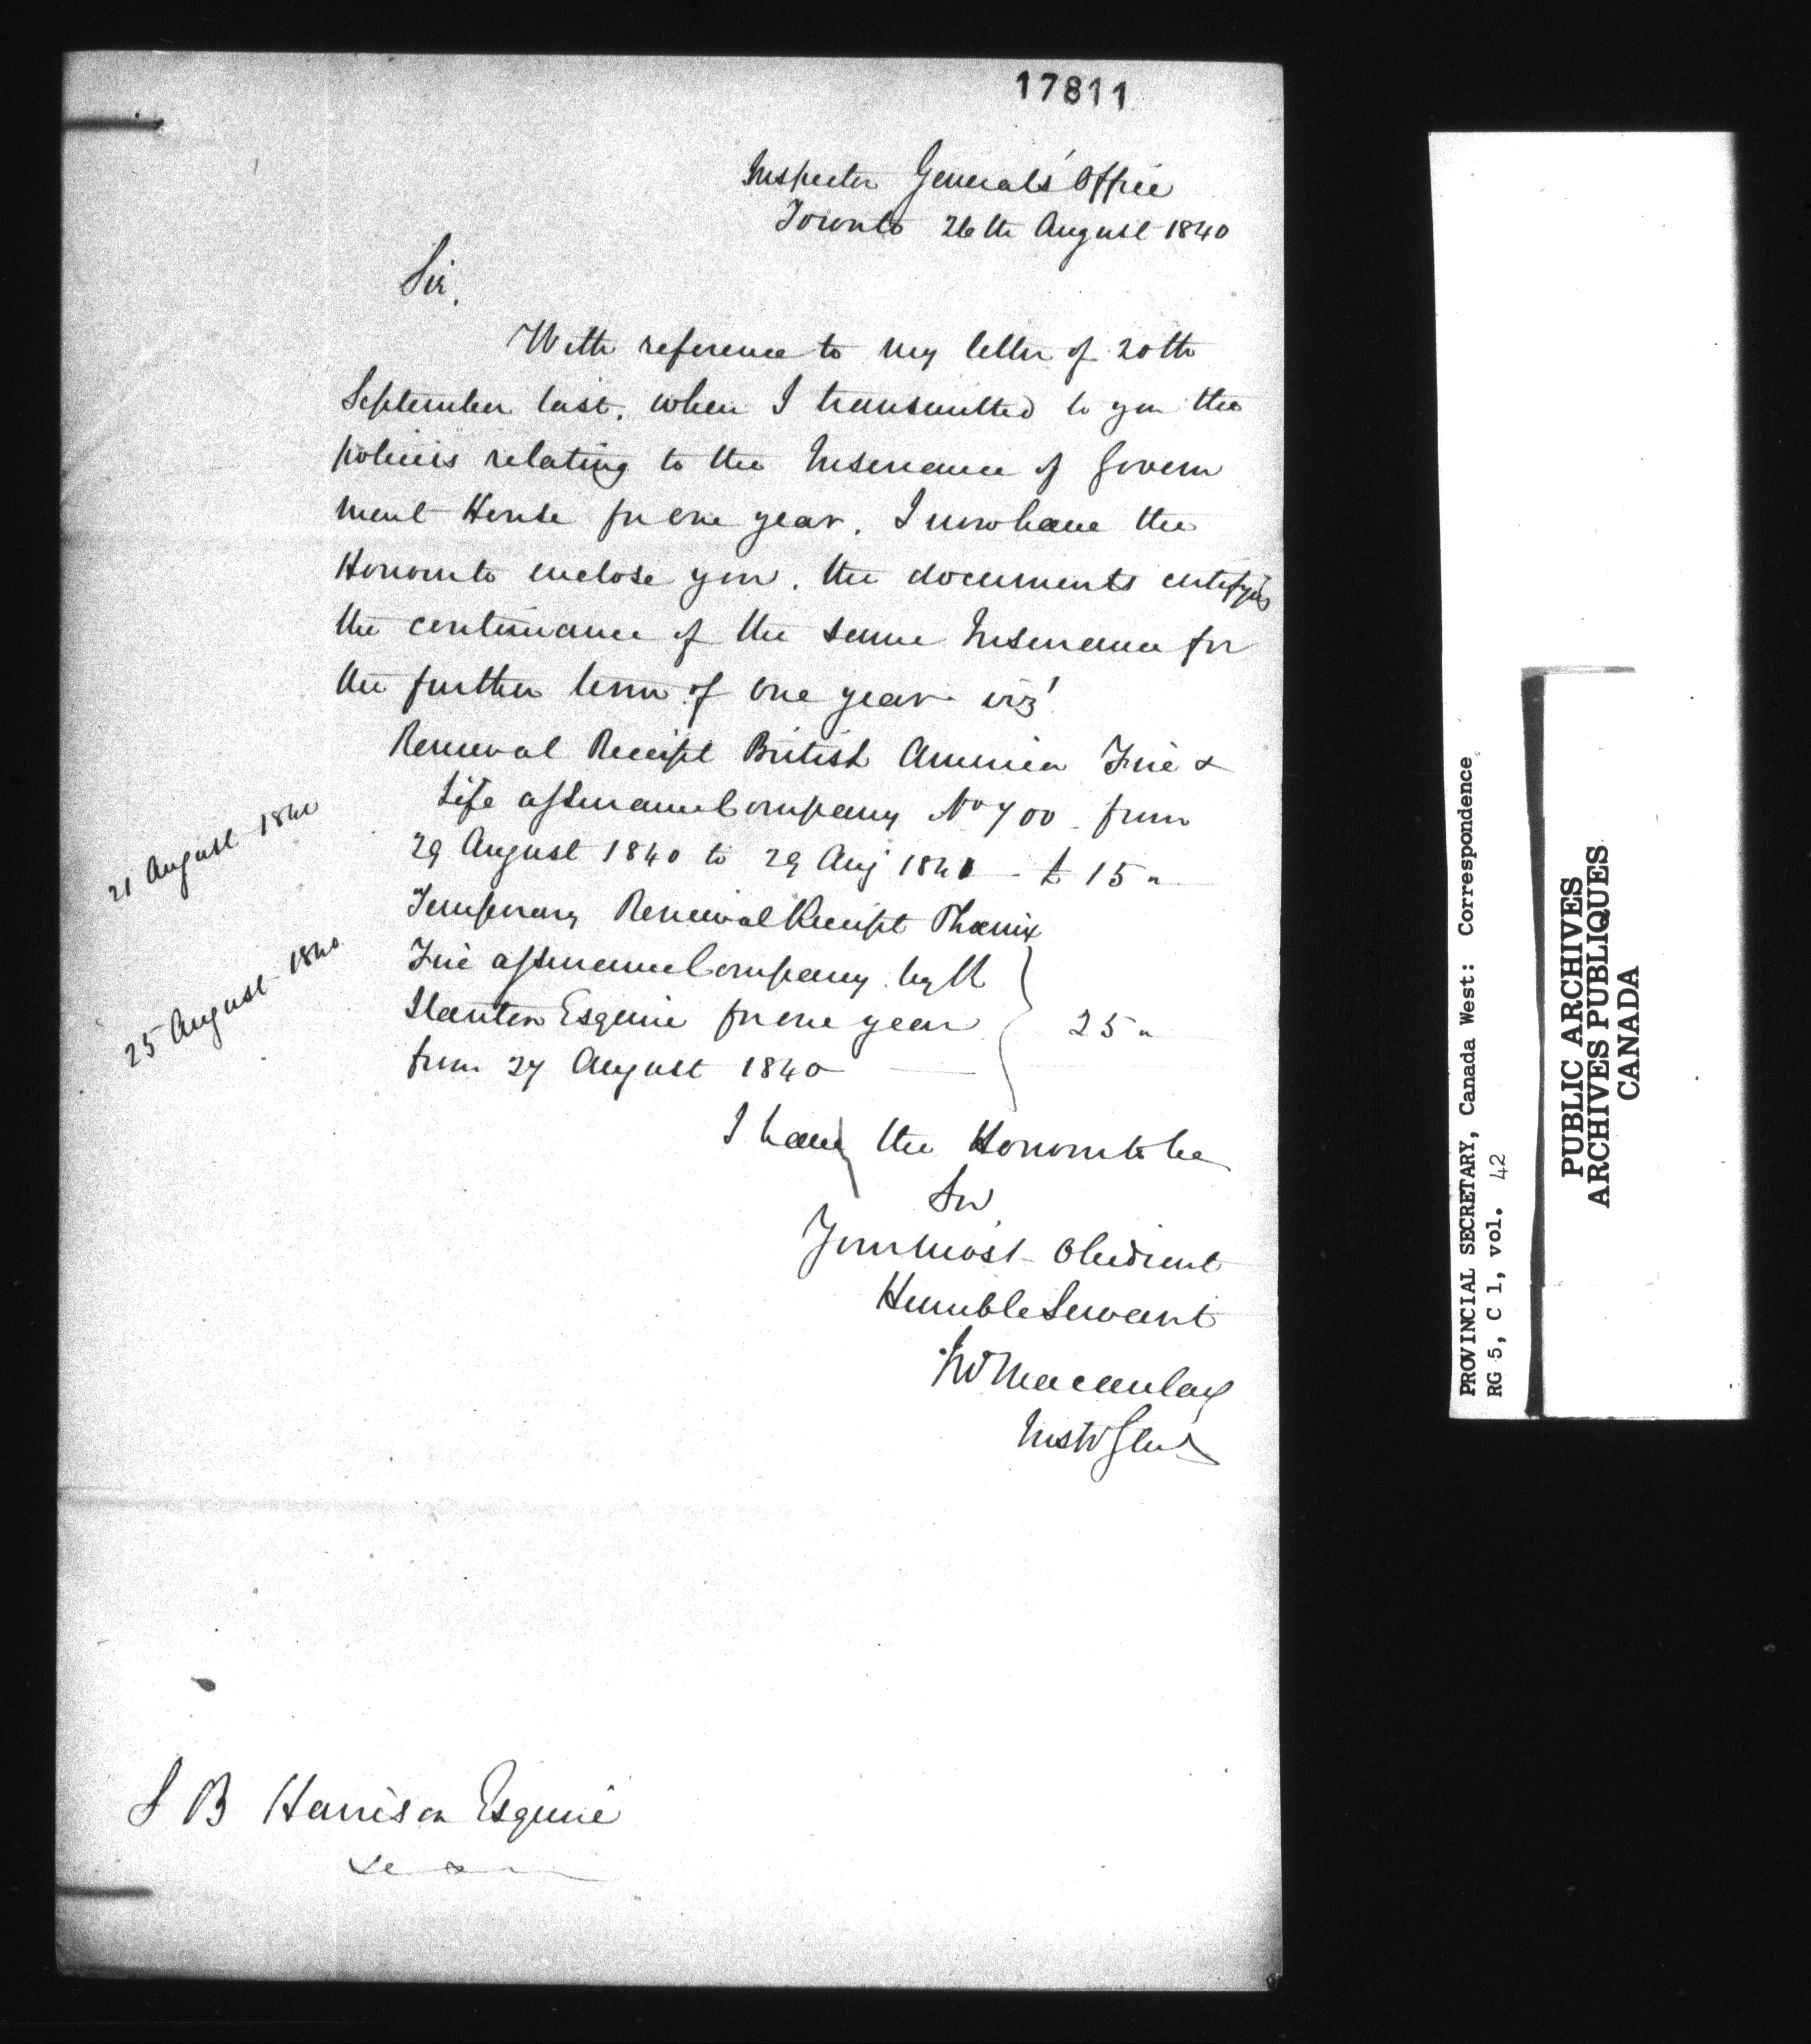 17811
Inspector General's Office
Toronto 26th August 1840
Sir,
With reference to my letter of 20th
September last, when I transmitted to you the
policies relating to the Insurance of Govern
ment House for one year, I now have the
Honor to enclose you, the documents certifying
the continuance of the same Insurance for
the further term of one year viz'
Renewal Receipt British America Fire &
21 August 1840
Life assurance Company No 700 from
29 August 1840 to 29 Aug 1841 - £ 15 "
Temporary Renewal Receipt Phœnix
25 August 1840
Fire assurance Company by
Stanton Esquire for one year
25 "
from 27 August 1840
I have the Honor to be
Sir
Your most Obedient
Humble Servant
Jno Macaulay
Inspr Genl
S B Harrison Esquire
PROVINCIAL SECRETARY, Canada West: Correspondence
RG 5, C 1, vol. 42
PUBLIC ARCHIVES
ARCHIVES PUBLIQUES
CANADA